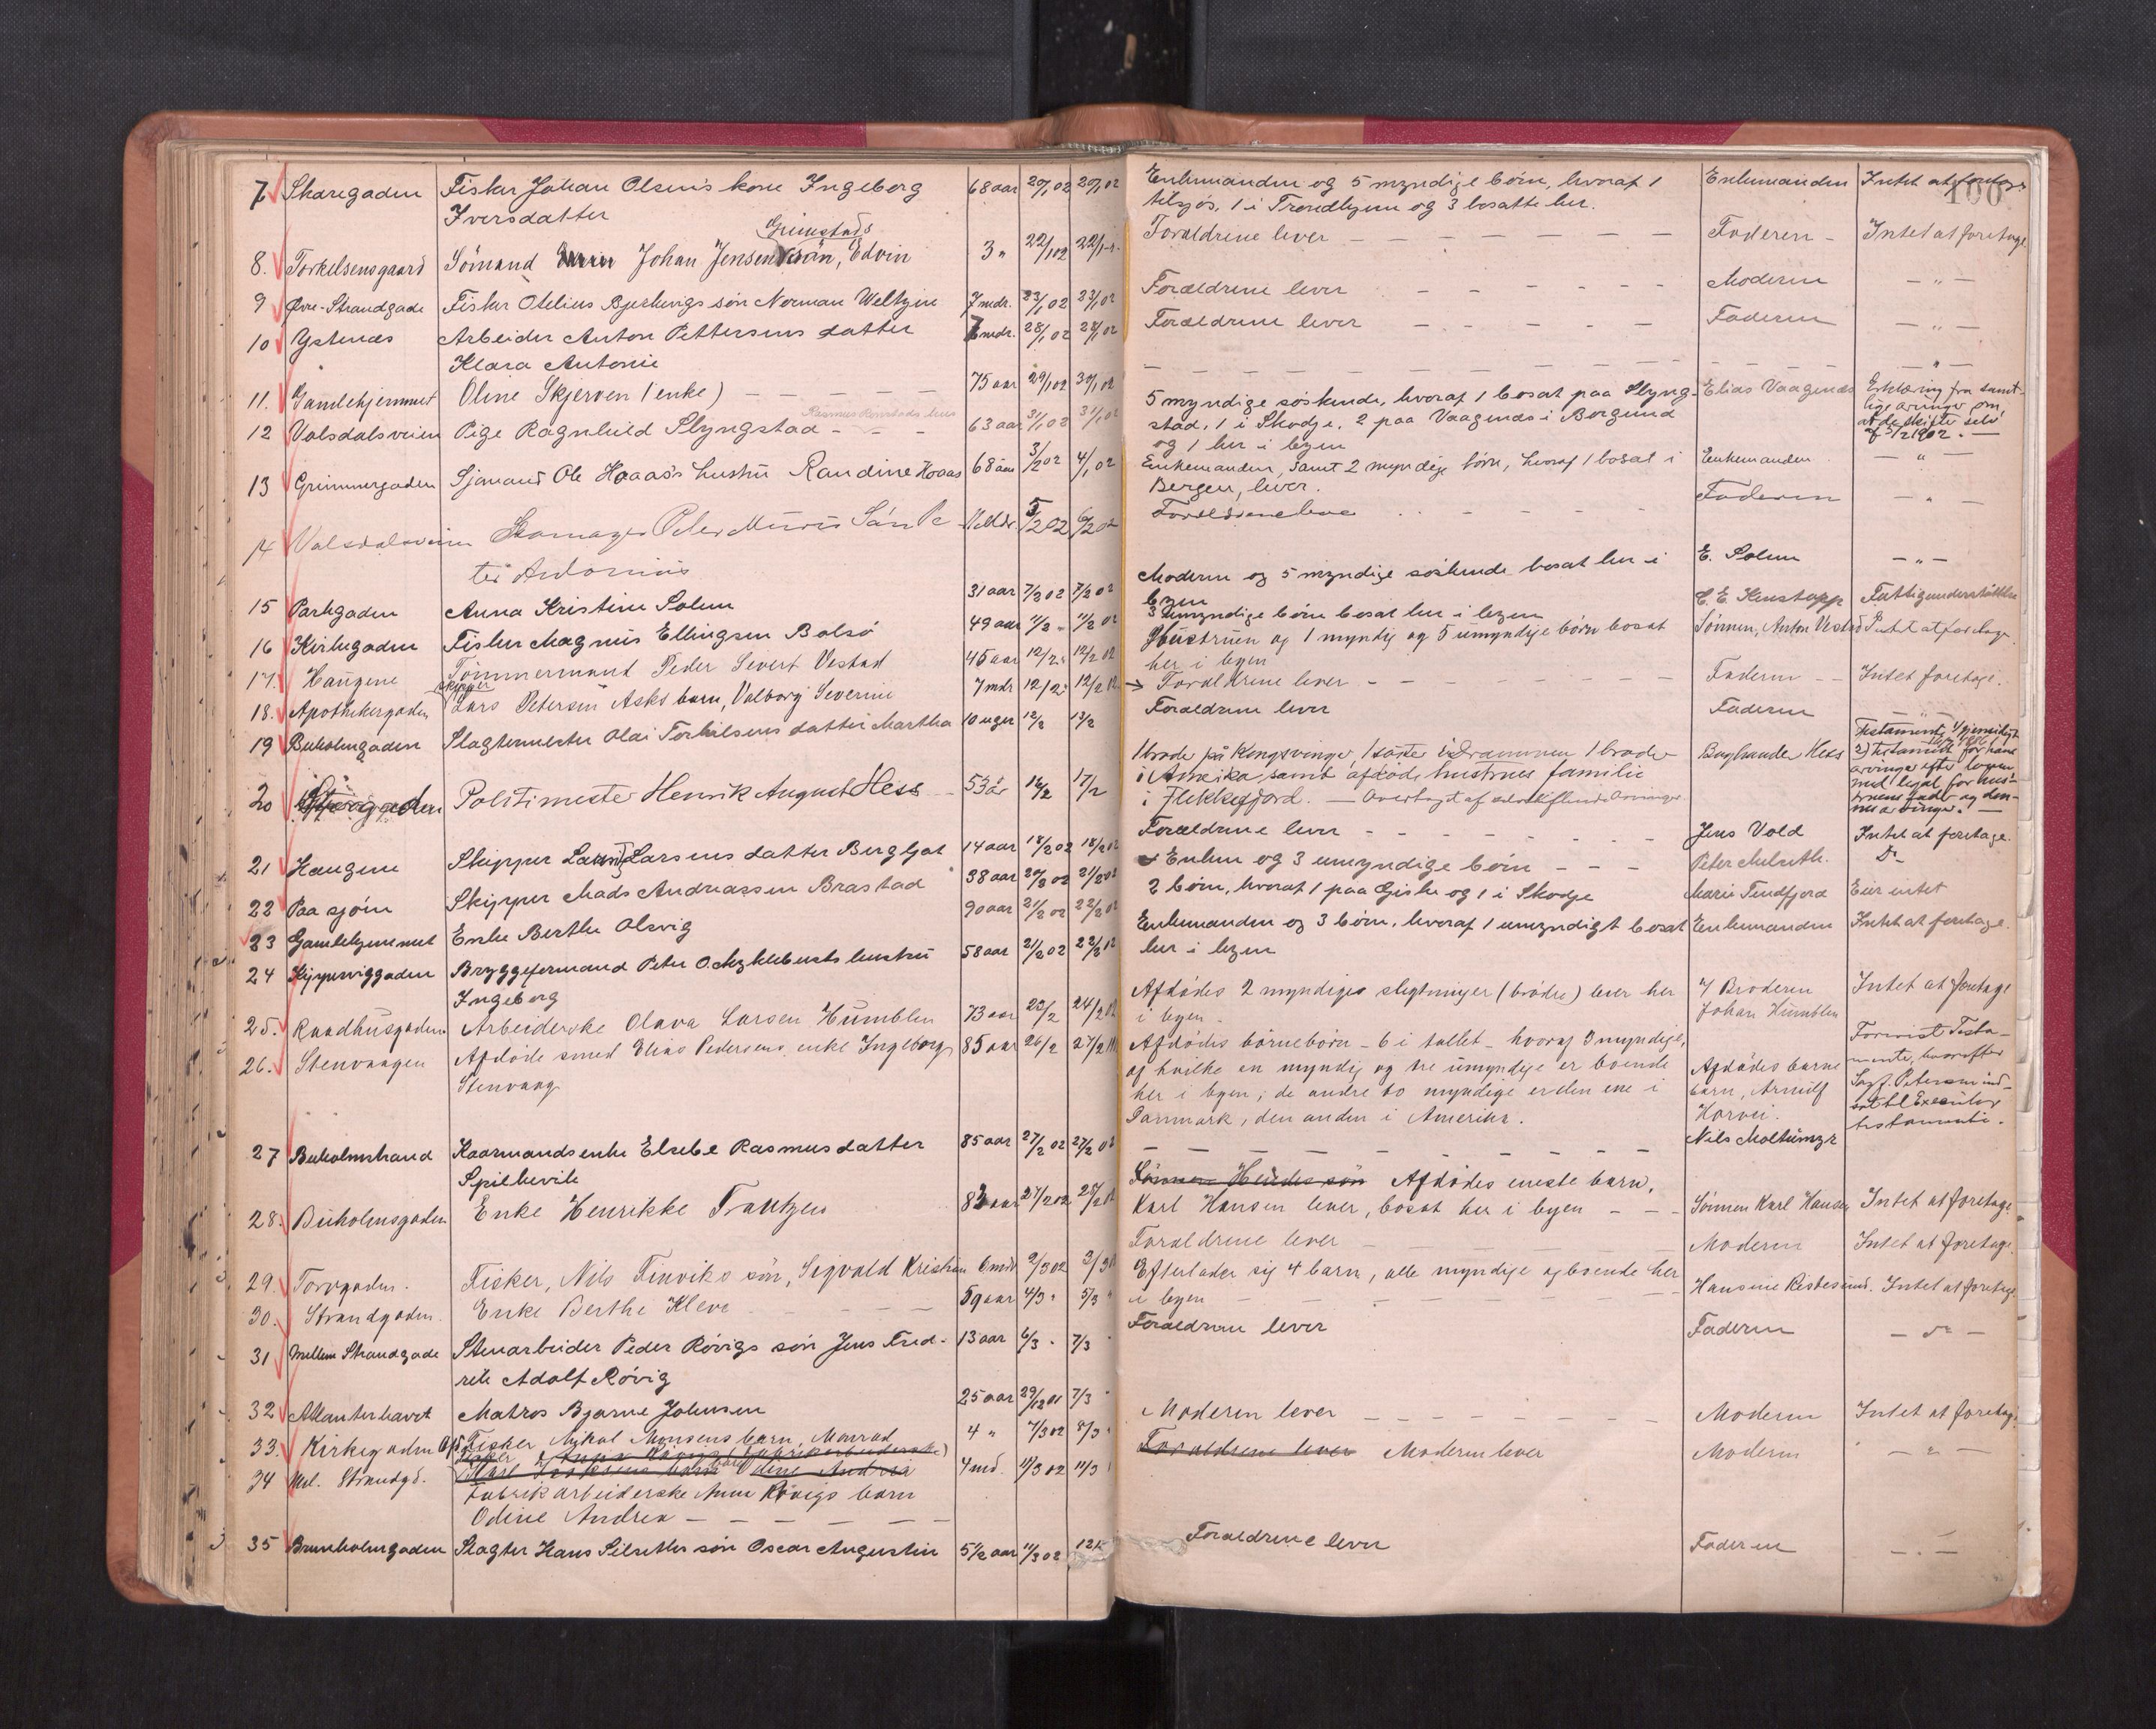 7 Skaregaden Fisker Johan Olsen's kone Ingeborg 68 aar 20/1 02 20/1 02 Enkemanden og 5 myndige børn, hvoraf 1 Enkemanden Intet at foretage
100
Iversdatter tilsjøs, 1 i Trondhjem og 3 bosatte her.
Grimstads
8. Torkelsensgaard Sömand Johan Jensen sön, Edvin 3 " 22/1 02 22/1 Forældrene lever — — — Faderen - Intet at foretage
9 Øvre-Strandgade Fisker Otelius Bjerkevigs søn Norman Weltzin 7 mdr. 23/1 02 23/1 02 Forældrene lever - - - Moderen — " —
10 Ystenæs Arbeider Anton Pettersens datter mdr. 28/1 02 28/1 02 Forældrene lever - - - Faderen — " —
Klara Antonie
11. Gamlehjemmet Oline Skjerven (enke) — — — 75 aar 29/1 02 30/1 02 — — — — "
Rasmus Rønstads hus
12 Volsdalsveien Pige Ragnhild Slyngstad - - - 63 aar 31/1 02 31/1 02 5 myndige søskende, hvoraf 1 bosat paa Slyng- Elias Vaagenæs Erklæring fra samt-
stad, 1 i Skodje, 2 paa Vaagenæs i Borgund lige arvinger om,
og 1 her i byen at de skifte selv
af 3/2 1902. —
13 Grimmergaden Sjømand Ole Hoaas's hustru Randine Hoaas 68 aar 3/2 02 4/1 02 Enkemanden, samt 2 myndige børn, hvoraf 1 bosat i Enkemanden — " —
Bergen, lever.
14 Volsdalsveien Peder Sön Pe- 5/2 02 6/2 02 Forældrene leve - - - Faderen — " —
ter Antonius
15 Parkgaden Anna Kristine Solem 31 aar 7/2 02 7/2 02 Moderen og 5 myndige søskende bosat her i E. Solem — " —
byen
16 Kirkegaden Fisker Magnus Ellingsen Bolsø 49 aar 11/2 " 11/2 02 3 umyndige børn bosat her i byen Fattigunderstøttelse
17. Haugene Tömmermand Peder Sivert Vestad 45 aar 12/2 12/2 02 Hustruen og 1 myndig og 5 umyndige børn bosat Sønnen, Anton Vestad Intet at foretage
her i byen
18. Apothekergaden Skipper Lars Petersen Asks barn, Valborg Severine 7 mdr 12/2 12/2 02 → Forældrene lever - - - Faderen — Intet foretage.
19 Buholmgaden Slagtermester Olai Torkilsens datter Martha 10 uger 12/2 13/2 Forældrene lever Faderen
20 Politimester Henrik August Hess — 53 år 16/2 17/2 1 broder på Kongsvinger, 1 søster i Drammen 1 broder Boghandler Hess Testamente
i Amerika samt afdøde hustrues familie 2) testament for hans
i Flekkefjord. — Overtaget af arvinger efter loven
med legat for hus-
truens
arvinger. —
21 Haugene Skipper Laurits Larsens datter Bergljot 14 aar 18/2 02 18/2 02 Forældrene lever - - - Jens Vold Intet at foretage.
22 Paa sjøen Skipper Mads Andreassen Brastad 38 aar 20/2 02 21/2 02 Enken og 3 umyndige børn - - - Peter Melseth. Do
23 Gamlehjemmet Enke Berthe Olsvig 90 aar 21/2 02 22/2 02 2 børn, hvoraf 1 paa Giske og 1 i Skodje Marie Tendfjord Eier intet
24 Kiperviggaden Bryggeformand Peter O. Myklebusts hustru 58 aar 21/2 02 22/2 02 Enkemanden og 3 børn, hvoraf 1 umyndigt bosat Enkemanden Intet at foretage.
Ingeborg her i byen
25. Raadhusgaden Arbeiderske Olava Larsen Humblen 73 aar 23/2 24/2 02 Afdødes 2 myndige slegtninger (brødre) lever her Broderen Intet at foretage
i byen - Johan Humblen
26. Stenvaagen Afdöde smed Elias Pedersens enke Ingeborg 85 aar 26/2 27/2 Afdödes börnebörn - 6 i tallet - hvoraf 3 myndige, Testa-
Stenvaag af hvilke en myndig og tre umyndige er boende Afdödes barne mente, hvorefter
her i byen; de andre to myndige er den ene i barn, Arnulf Petersen ind-
Danmark, den anden i Amerika. til Executor
testamenti.
27 Buholmstrand Kaarmandsenke Elsebe Rasmusdatter 85 aar 27/2 02 27/2 02 — — — — Nils Moltumyr
Spilkevik
28. Buholmsgaden Enke Henrikke Frantzen aar 27/2 02 28/2 02 Afdödes eneste barn,
Karl Hansen lever, bosat her i byen - - - Sönnen Karl Hansen Intet at foretage
29. Torvgaden. Fisker, Nils Finviks sön, Sigvald Kristian 6 mdr 2/3 02 3/3 02 Forældrene lever — Moderen Intet at foretage.
30. Strandgaden. Enke Berthe Kleve - - - 59 aar 4/3 " 5/3 " Efterlader sig 4 barn, alle myndige og boende her Hansine Restesund. Intet at foretage.
i byen
31 Mellem Strandgade Stenarbeider Peder Røvigs søn Jens Fred- 13 aar 6/3 " 7/3 " Forældrene lever Faderen — do —
rik Adolf Røvig
32 Atlanterhavet Matros Bjarne Johnsen 25 aar 29/12 01 7/3 "
33. Kirkegaden Fisker Nikol Monsens barn, Monrad 4 " 7/3 02 8/3 " Moderen lever - - - Moderen Intet at foretage.
34 Mel. Strandgd. 4 md. 11/3 02 11/3 Forældrene lever Moderen lever Moderen — " —
Fabrikarbeiderske Anna Røvigs barn
Odine Andrea — — —
35 Brunholmgaden Slagter Hans Silseths søn Oscar Augustin 5 1/2 aar 11/3 02 12/3 Forældrene lever Faderen — " —